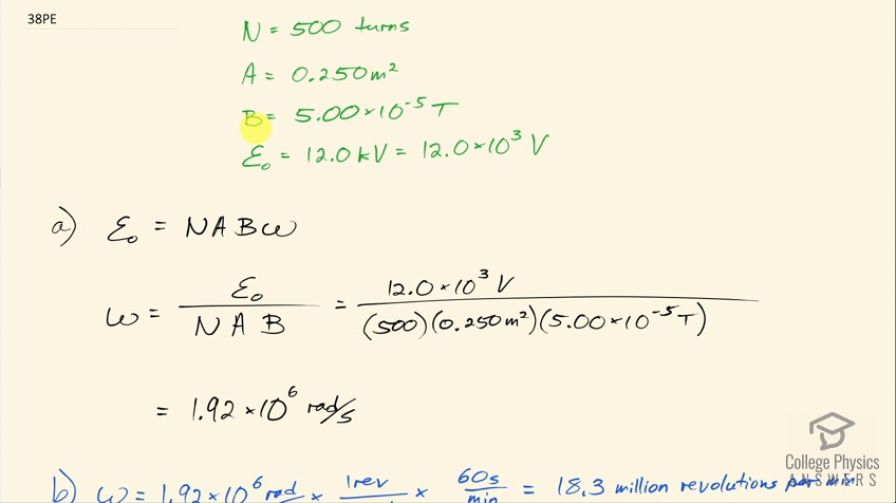 38PE
N = 500 turns
A = 0.250 m²
B = 5.00×10⁻⁵ T
ℰ₀ = 12.0 kV = 12.0×10³ V
a) ℰ₀ = NABω
ω = ℰ₀ / NAB = 12.0×10³ V / (500)(0.250 m²)(5.00×10⁻⁵ T)
= 1.92×10⁶ rad/s
b) ω = 1.92×10⁶ rad × 1rev × 60s/min = 18.3 million revolutions per min
College Physics
ANSWERS